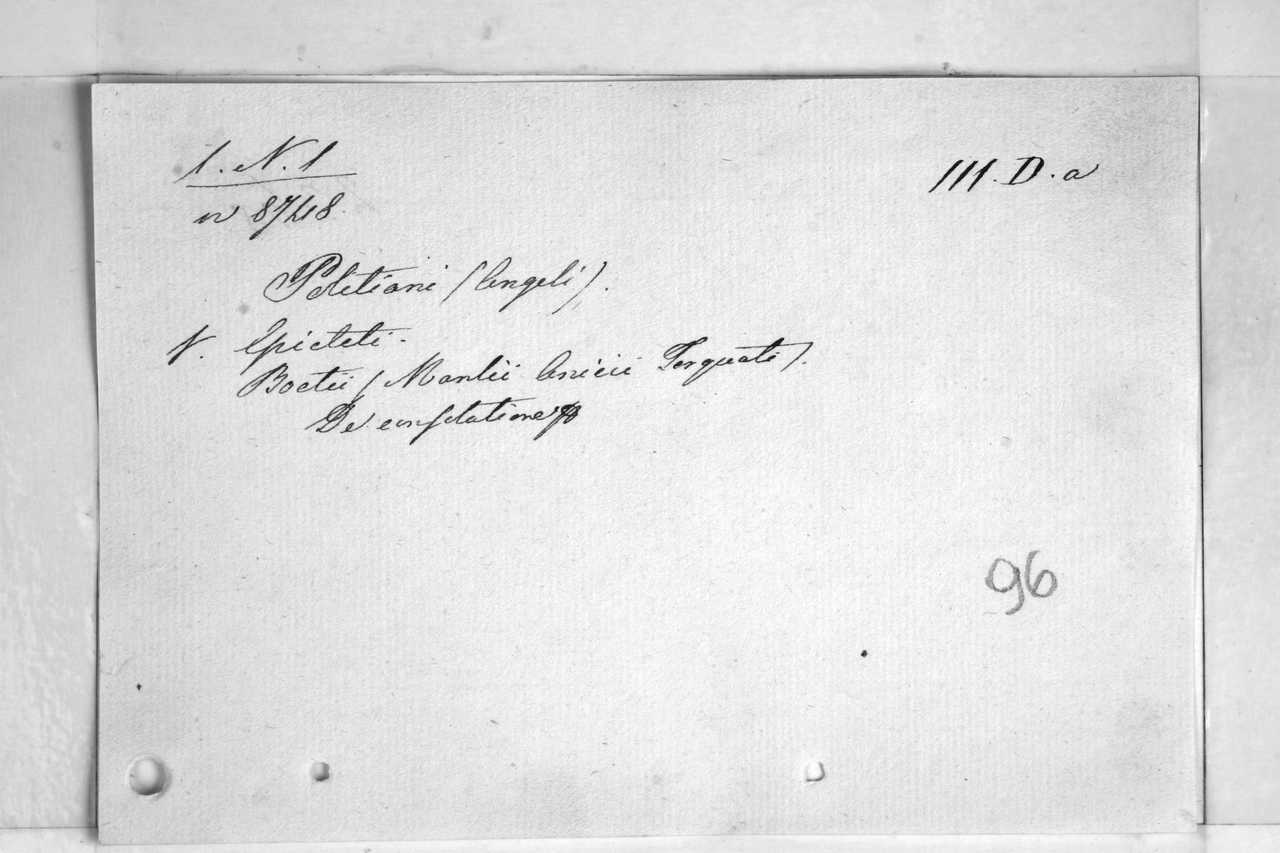 1. N. 1
III. D. a
n 8748
Politiani (Angeli).
V. Epicteti.
Boetii (Manlii Anicii Torquati).
De consolatione
96